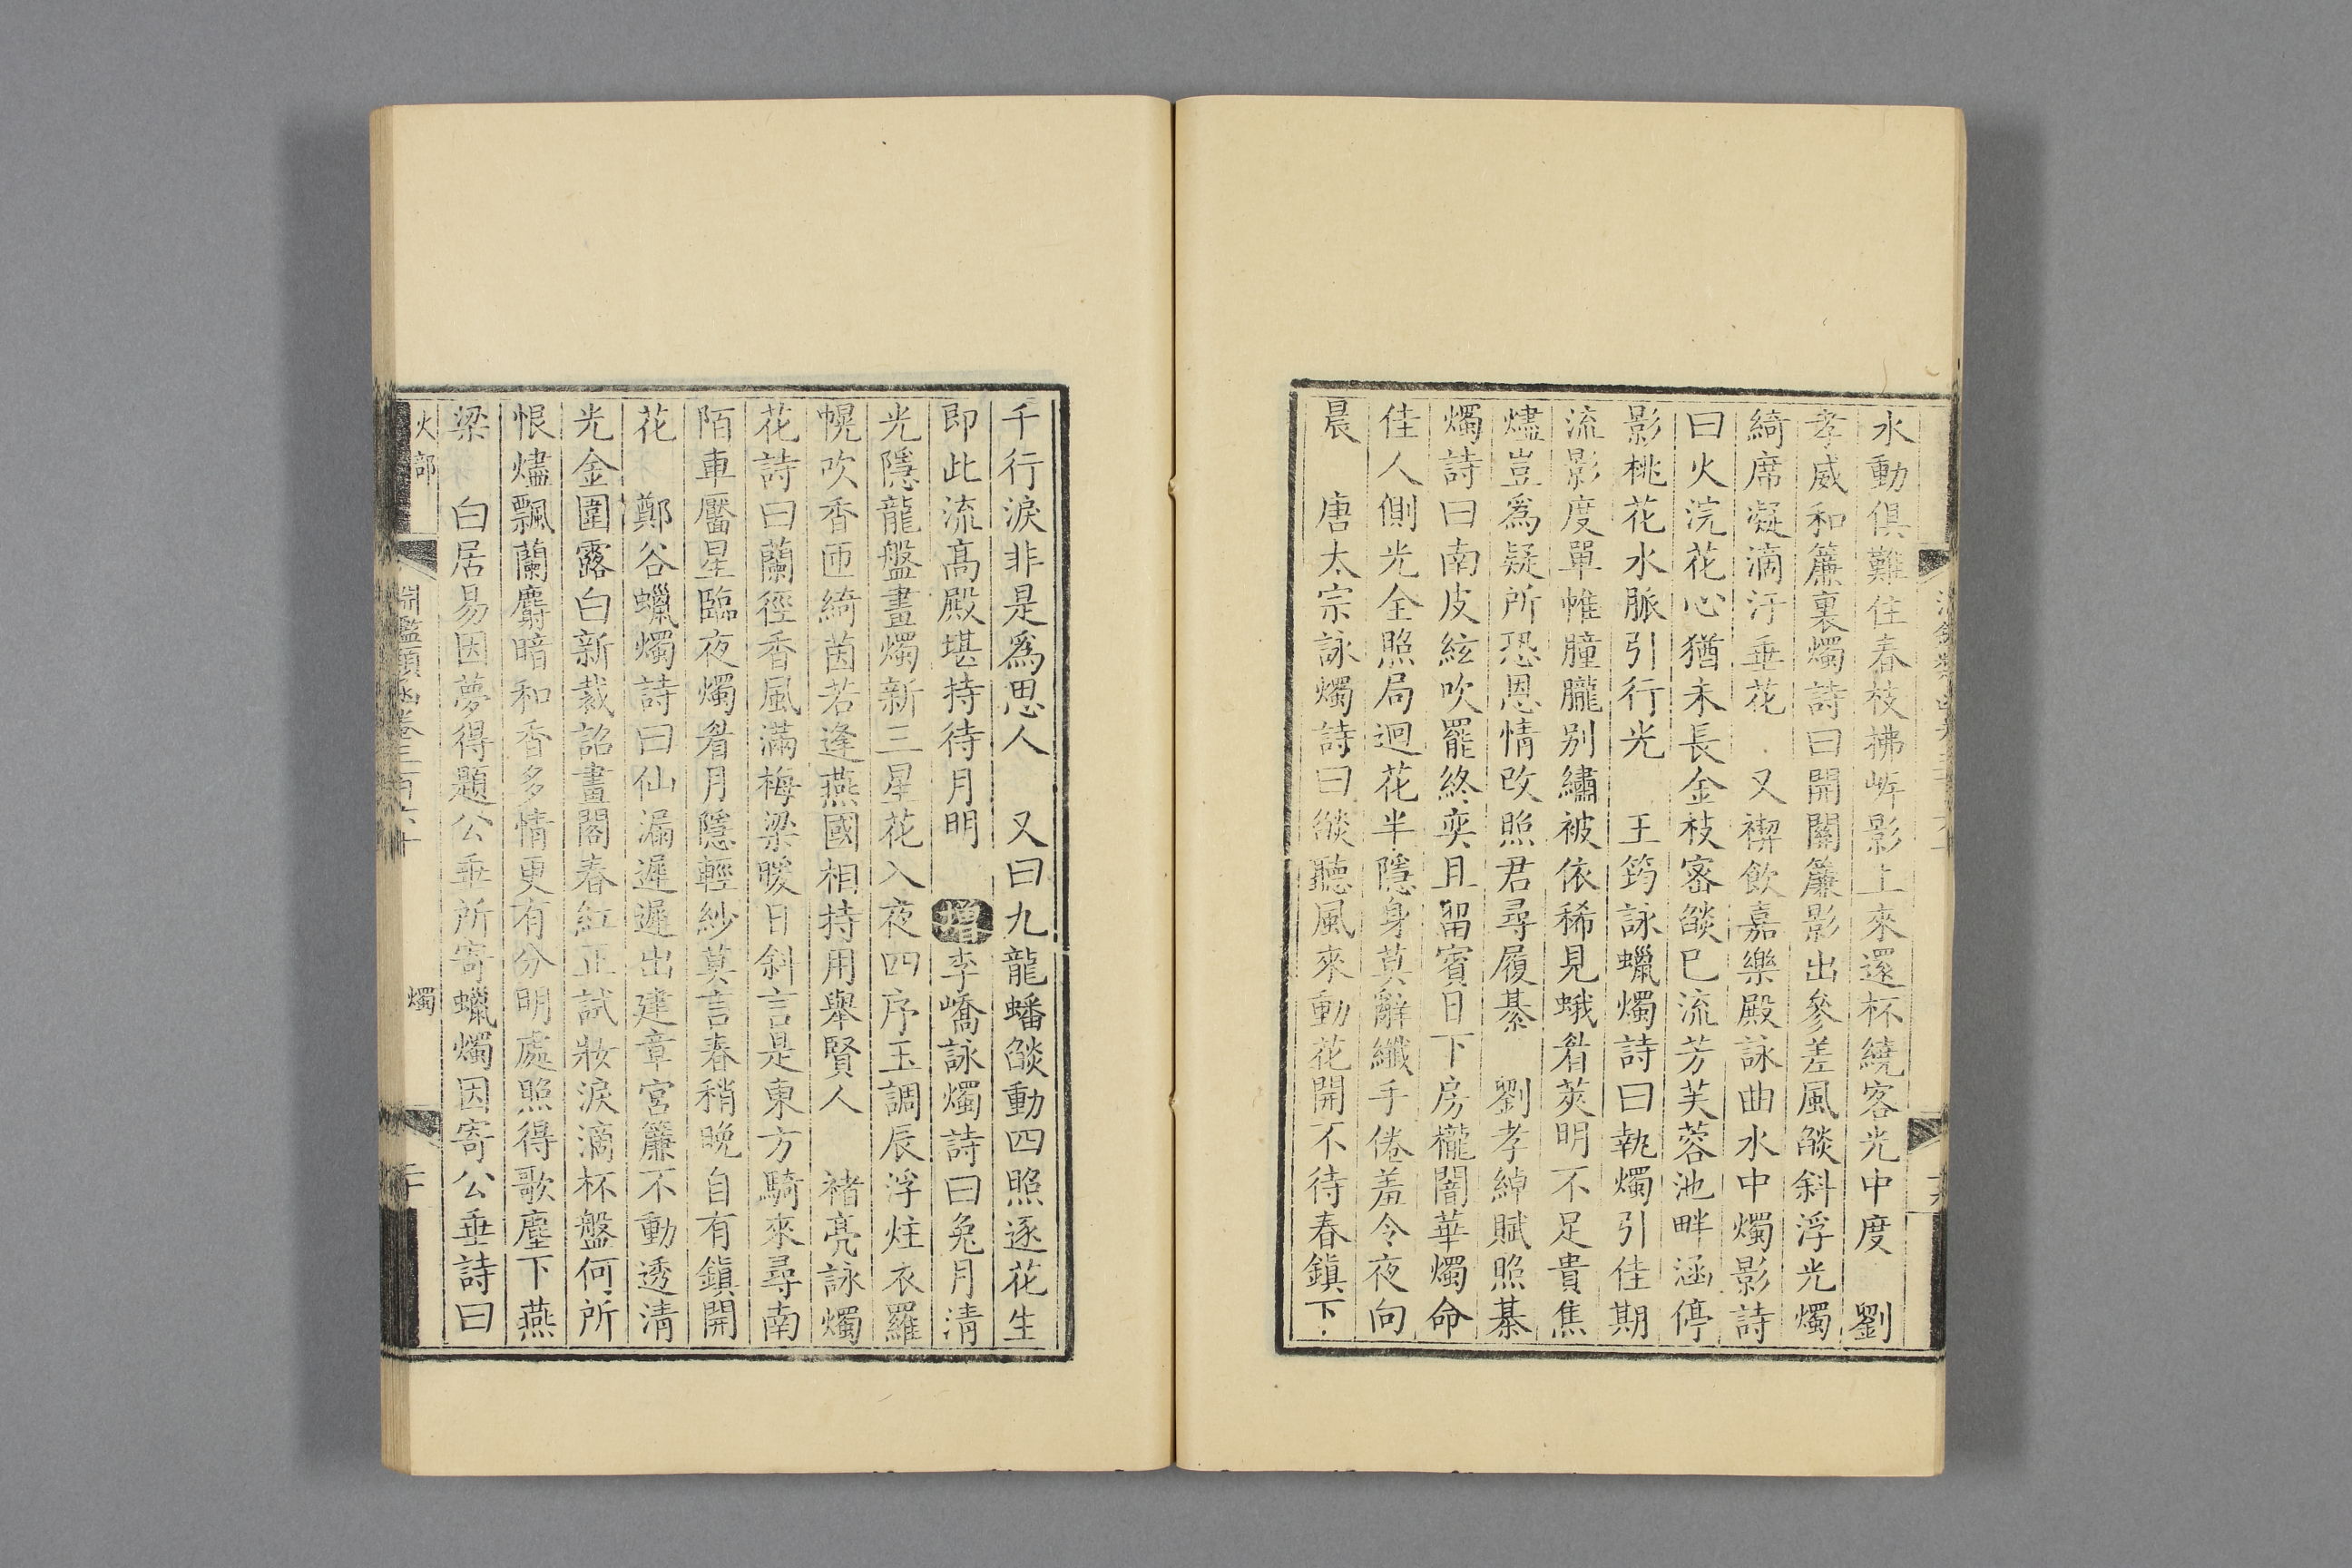 水動俱難住春枝拂岸影上來還杯繞客光中度　劉
孝威和簾裏燭詩曰開關簾影出參差風燄斜浮光燭
綺席凝滴汙垂花　又禊飲嘉樂殿詠曲水中燭影詩
曰火浣花心猶未長金枝密燄巳流芳芙蓉池畔涵停
影桃花水脈引行光　王筠詠蠟燭詩曰執燭引佳期
流影度單帷朣朧别繡被依稀見蛾眉莢明不足貴焦
燼豈爲疑所恐恩情改照君尋履綦　劉孝綽賦照棊
燭詩曰南皮絃吹罷終奕且留賓日下房櫳闇華燭命
佳人側光全照局迴花半隱身莫辭纖手倦羞令夜向
晨　唐太宗詠燭詩曰燄聽風來動花開不待春鎭下
千行淚非是爲思人　又曰九龍蟠燄動四照逐花生
即此流高殿堪持待月明　增李嶠詠燭詩曰兔月淸
光隱龍盤畫燭新三星花入夜四序玉調辰浮炷衣羅
幌吹香匝綺茵若逢燕國相持用舉賢人　褚亮詠燭
花詩曰蘭徑香風滿梅梁暖日斜言是東方騎來尋南
陌車靨星臨夜燭眉月隱輕紗莫言春稍晚自有鎭開
花　鄭谷蠟燭詩曰仙漏遲遲出建章宮簾不動透淸
光金圍露白新裁詔畫閣春紅正試妝淚滴杯盤何所
恨燼飄蘭麝暗和香多情更有分明處照得歌塵下燕
梁　白居易因夢得題公垂所寄蠟燭因寄公垂詩曰
火部
淵鑑類函卷三百六十
燭
二十